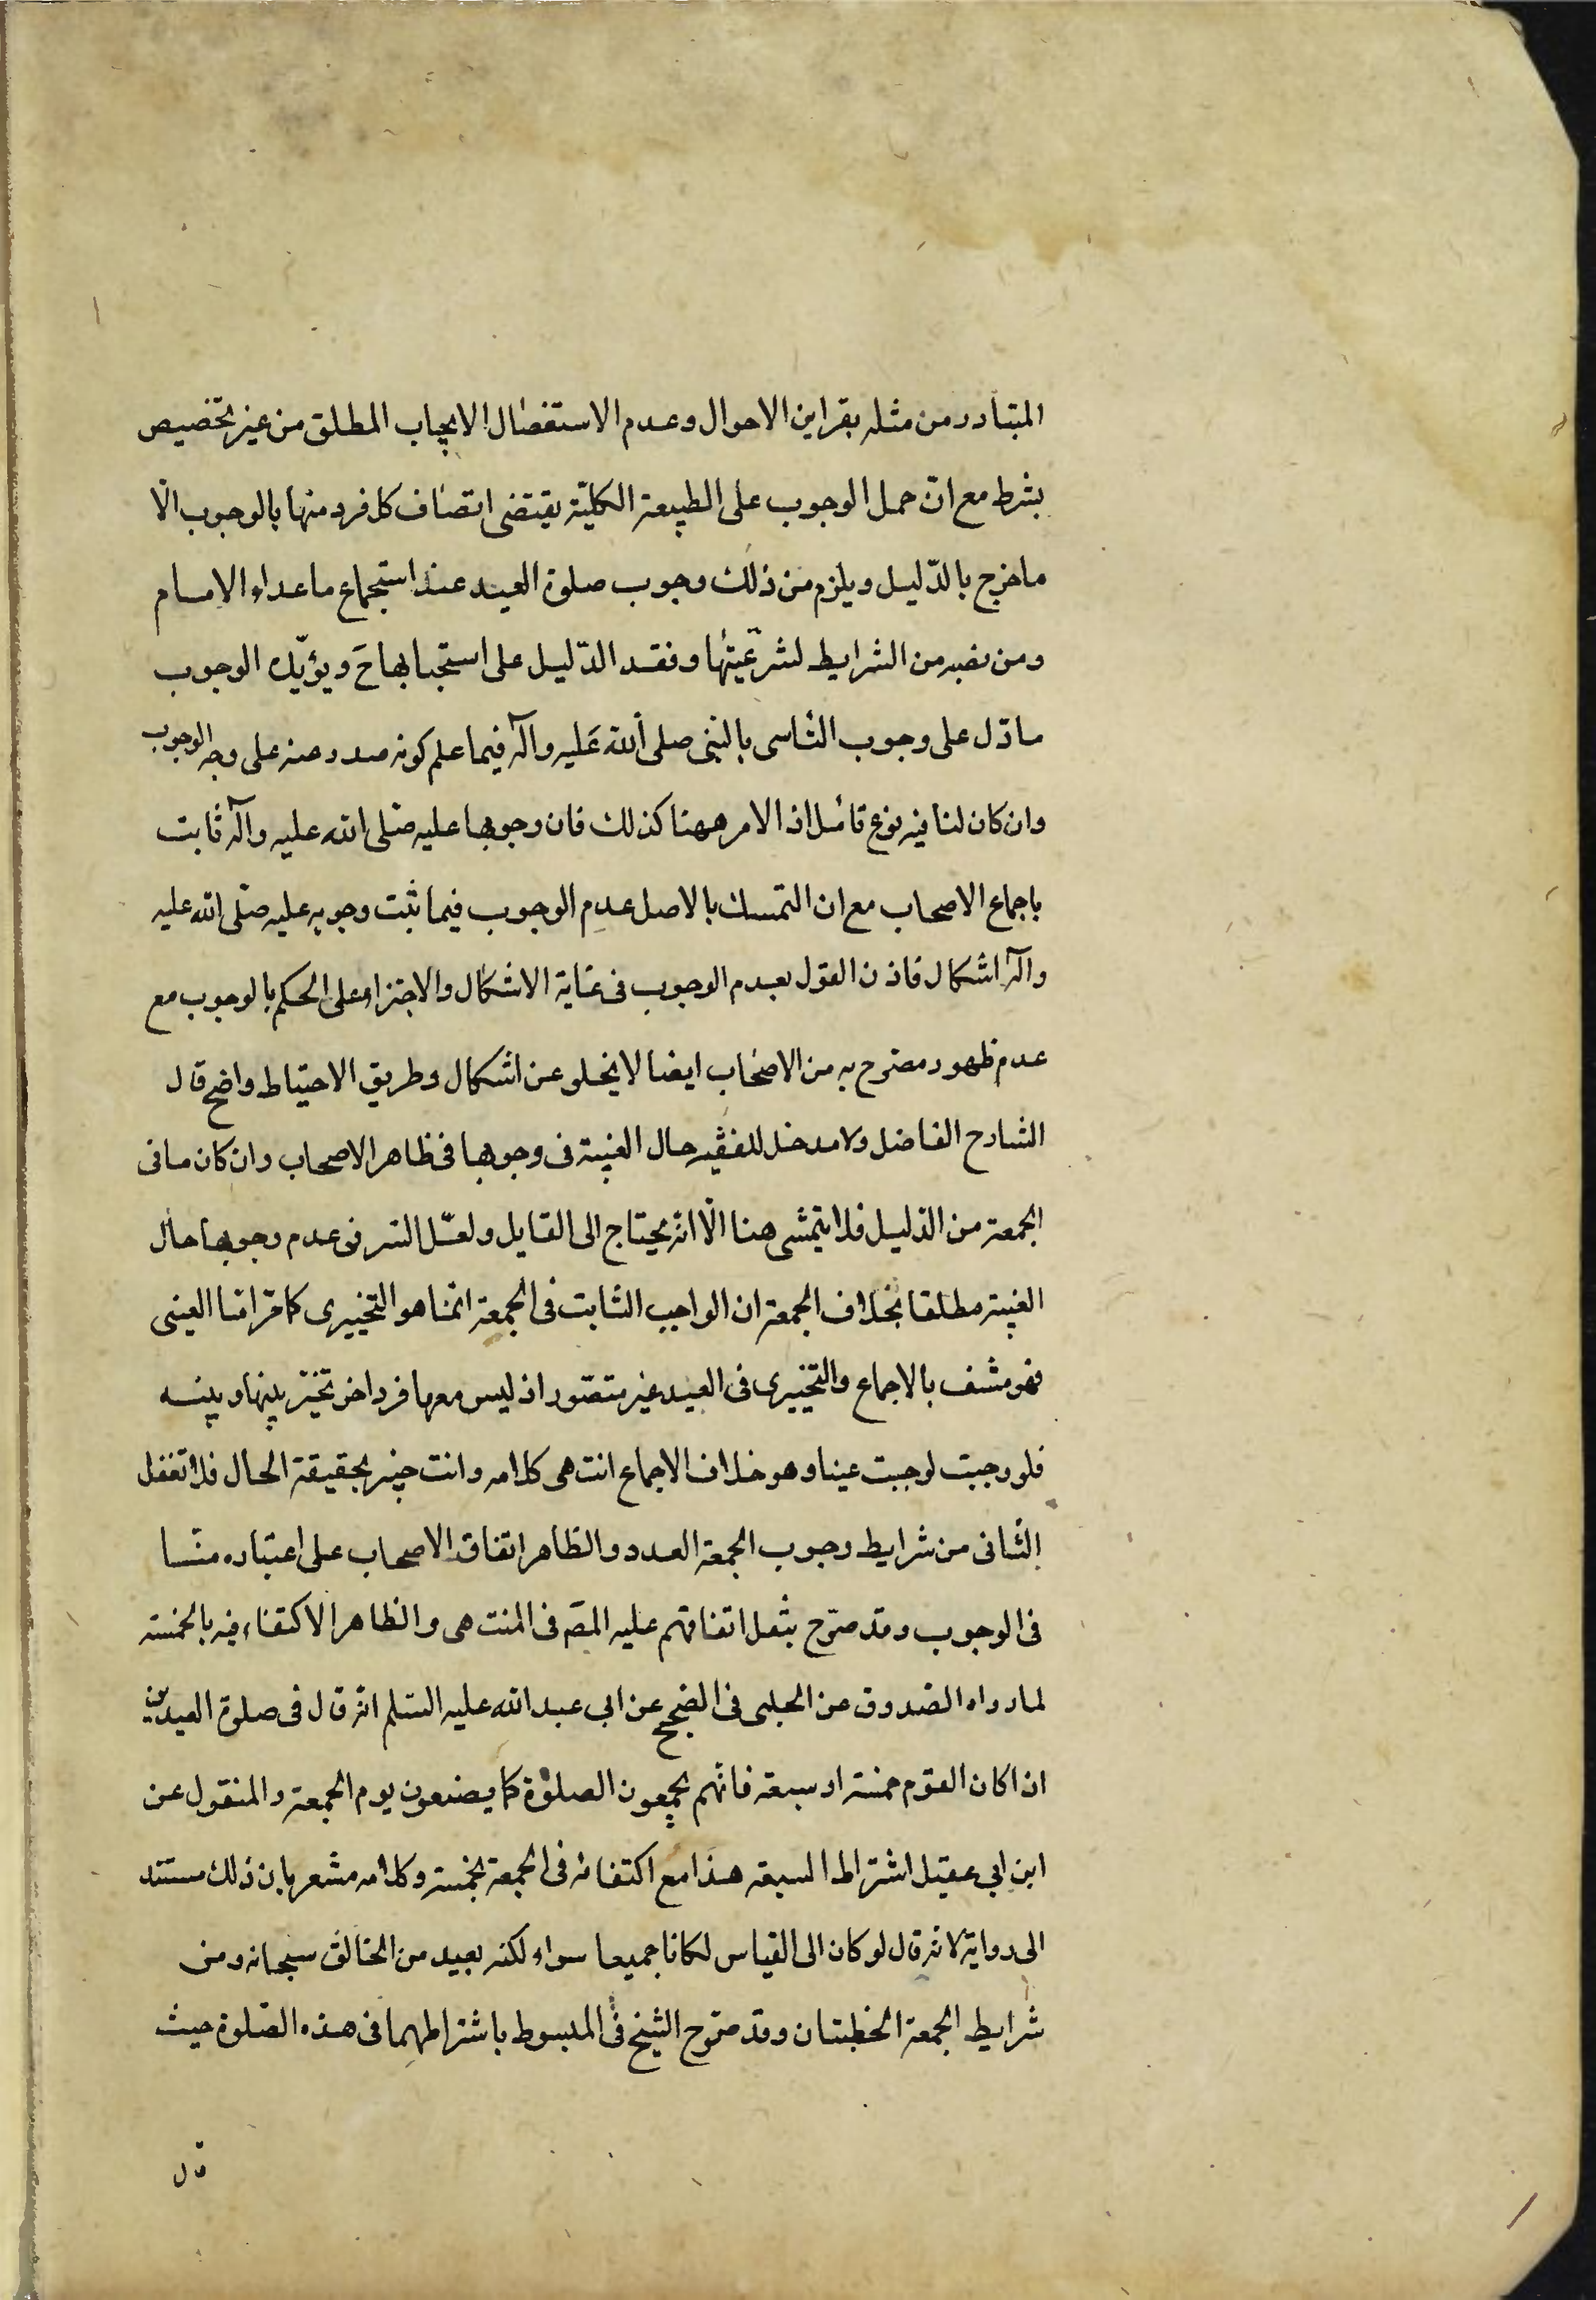 المتبادر من مثله بقراين الاحوال وعدم الاستفصال الايجاب المطلق من غير تخصيص
بشرط مع انّ حمل الوجوب على الطبيعة الكليّة يقتضى اتصاف كل فرد منها بالوجوب الّا
ما خرج بالدّليل ويلزم من ذلك وجوب صلوة العيد عند استجماع ما عداء الامام
ومن نصبه من الشرايط لشرعيّتها وفقد الدّليل على استحبابها حَ ويؤيّد الوجوب
ما دّل على وجوب التاسى بالنبى صلى الله عَليه وآله فيما علم كونه صدر عنه على وجه الوجوب
وان كان لنا فيه نوع تامّل اذ الامر ههنا كذلك فان وجوبها عليه صلّى الله عليه وآله ثابت
باجماع الاصحاب مع ان التمسك بالاصل عدم الوجوب فيما ثبت وجوبه عليه صلّى الله عليه
وآله اشكال فاذن القول بعدم الوجوب فى غاية الاشكال والاجتراء على الحكم بالوجوب مع
عدم ظهور مصرّح به من الاصحاب ايضا لا يخلو عن اشكال وطريق الاحتياط واضح قال
الشارح الفاضل ولا مدخل للفقيه حال الغيبة فى وجوبها فى ظاهر الاصحاب وان كان ما فى
الجمعة من الدّليل فلا يتمشى هنا الّا انّه يحتاج الى القايل ولعلّ السّر فى عدم وجوبها حال
الغيبة مطلقا بخلاف الجمعة ان الواجب الثابت فى الجمعة انّما هو التخييرى كما مرّ امّا العينى
فهو منتف بالاجماع والتخييرى فى العيد غير متصّور اذ ليس معها فرد اخر تخيّر بينها وبينه
فلو وجبت لوجبت عينا وهو خلاف الاجماع انتهى كلامه وانت خبير بحقيقة الحال فلا تغفل
الثانى من شرايط وجوب الجمعة العدد والظاهر اتفاق الاصحاب على اعتباره هنا
فى الوجوب وقد صرّح بنقل اتفاقهم عليه المصَ فى المنتهى والظاهر الاكتفاء فيه بالخمسة
لما رواه الصّدوق عن الحلبى فى الصّحيح عن ابى عبد الله عليه السّلم انّه قال فى صلوة العيدين
اذا كان القوم خمسة او سبعة فانّهم يجمعون الصلوة كما يصنعون يوم الجمعة والمنقول عن
ابن ابى عقيل اشتراط السبعة هنا مع اكتفائه فى الجمعة بخمسة وكلامه مشعر بان ذلك مستند
الى رواية لانّه قال لو كان الى القياس لكانا جميعا سواء لكنه تعبيد من الخالق سبحانه ومن
شرايط الجمعة الخطبتان وقد صرّح الشيخ فى المبسوط باشتراطهما فى هذه الصّلوة حيث
قال